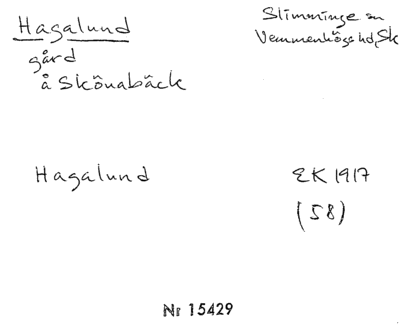 Hagalund
Slimminge sn
Vemmenhögs hd, Sk
gård
å Skönabäck
Hagalund
EK 1917
(58)
Nr 15429